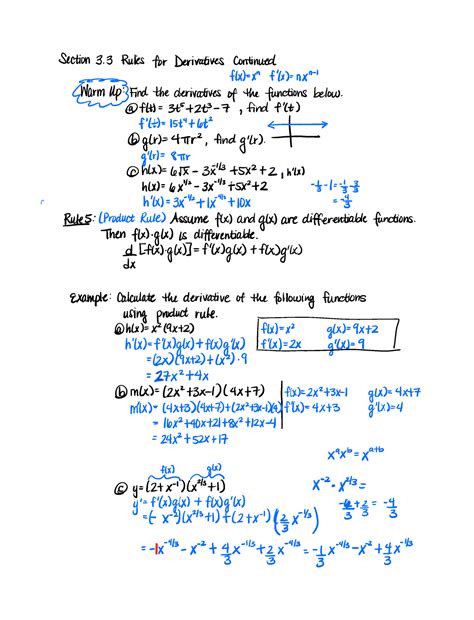 Section 3.3 Rules for Derivatives Continued
f(x)=xⁿ f'(x)=nxⁿ⁻¹
Warm Up: Find the derivatives of the functions below.
ⓐ f(t) = 3t⁵+2t³-7 , find f'(t)
f'(t)= 15t⁴+6t²
ⓑ g(r)= 4πr², find g'(r).
g'(r)= 8πr
ⓒ h(x)= 6√x - 3x^(-1/3) +5x²+2 , h'(x)
h(x)= 6x^(1/2) - 3x^(-1/3) +5x²+2
-1/3 - 1 = -1/3 - 3/3
h'(x)= 3x^(-1/2) + 1x^(-4/3) + 10x
= -4/3
Rule 5: (Product Rule) Assume f(x) and g(x) are differentiable functions.
Then f(x)·g(x) is differentiable.
d/dx [f(x)·g(x)] = f'(x)g(x) + f(x)g'(x)
Example: Calculate the derivative of the following functions
using product rule.
ⓐ h(x)= x²(9x+2)
f(x)=x² g(x)=9x+2
f'(x)=2x g'(x)=9
h'(x)= f'(x)g(x) + f(x)g'(x)
= (2x)(9x+2)+(x²)·9
= 27x²+4x
ⓑ m(x)= (2x²+3x-1)(4x+7)
f(x)=2x²+3x-1 g(x)=4x+7
m'(x)= (4x+3)(4x+7)+(2x²+3x-1)(4)
f'(x)=4x+3 g'(x)=4
= 16x²+40x+21+8x²+12x-4
= 24x²+52x+17
xᵃxᵇ = xᵃ⁺ᵇ
f(x) g(x)
ⓒ y= (2+x⁻¹)(x^(2/3)+1)
x⁻²·x^(2/3)=
y'= f'(x)g(x) + f(x)g'(x)
-6/3 + 2/3 = -4/3
= (-x⁻²)(x^(2/3)+1) + (2+x⁻¹)(2/3 x^(-1/3))
= -1x^(-4/3) - x⁻² + 4/3 x^(-1/3) + 2/3 x^(-4/3) = -1/3 x^(-4/3) - x⁻² + 4/3 x^(-1/3)